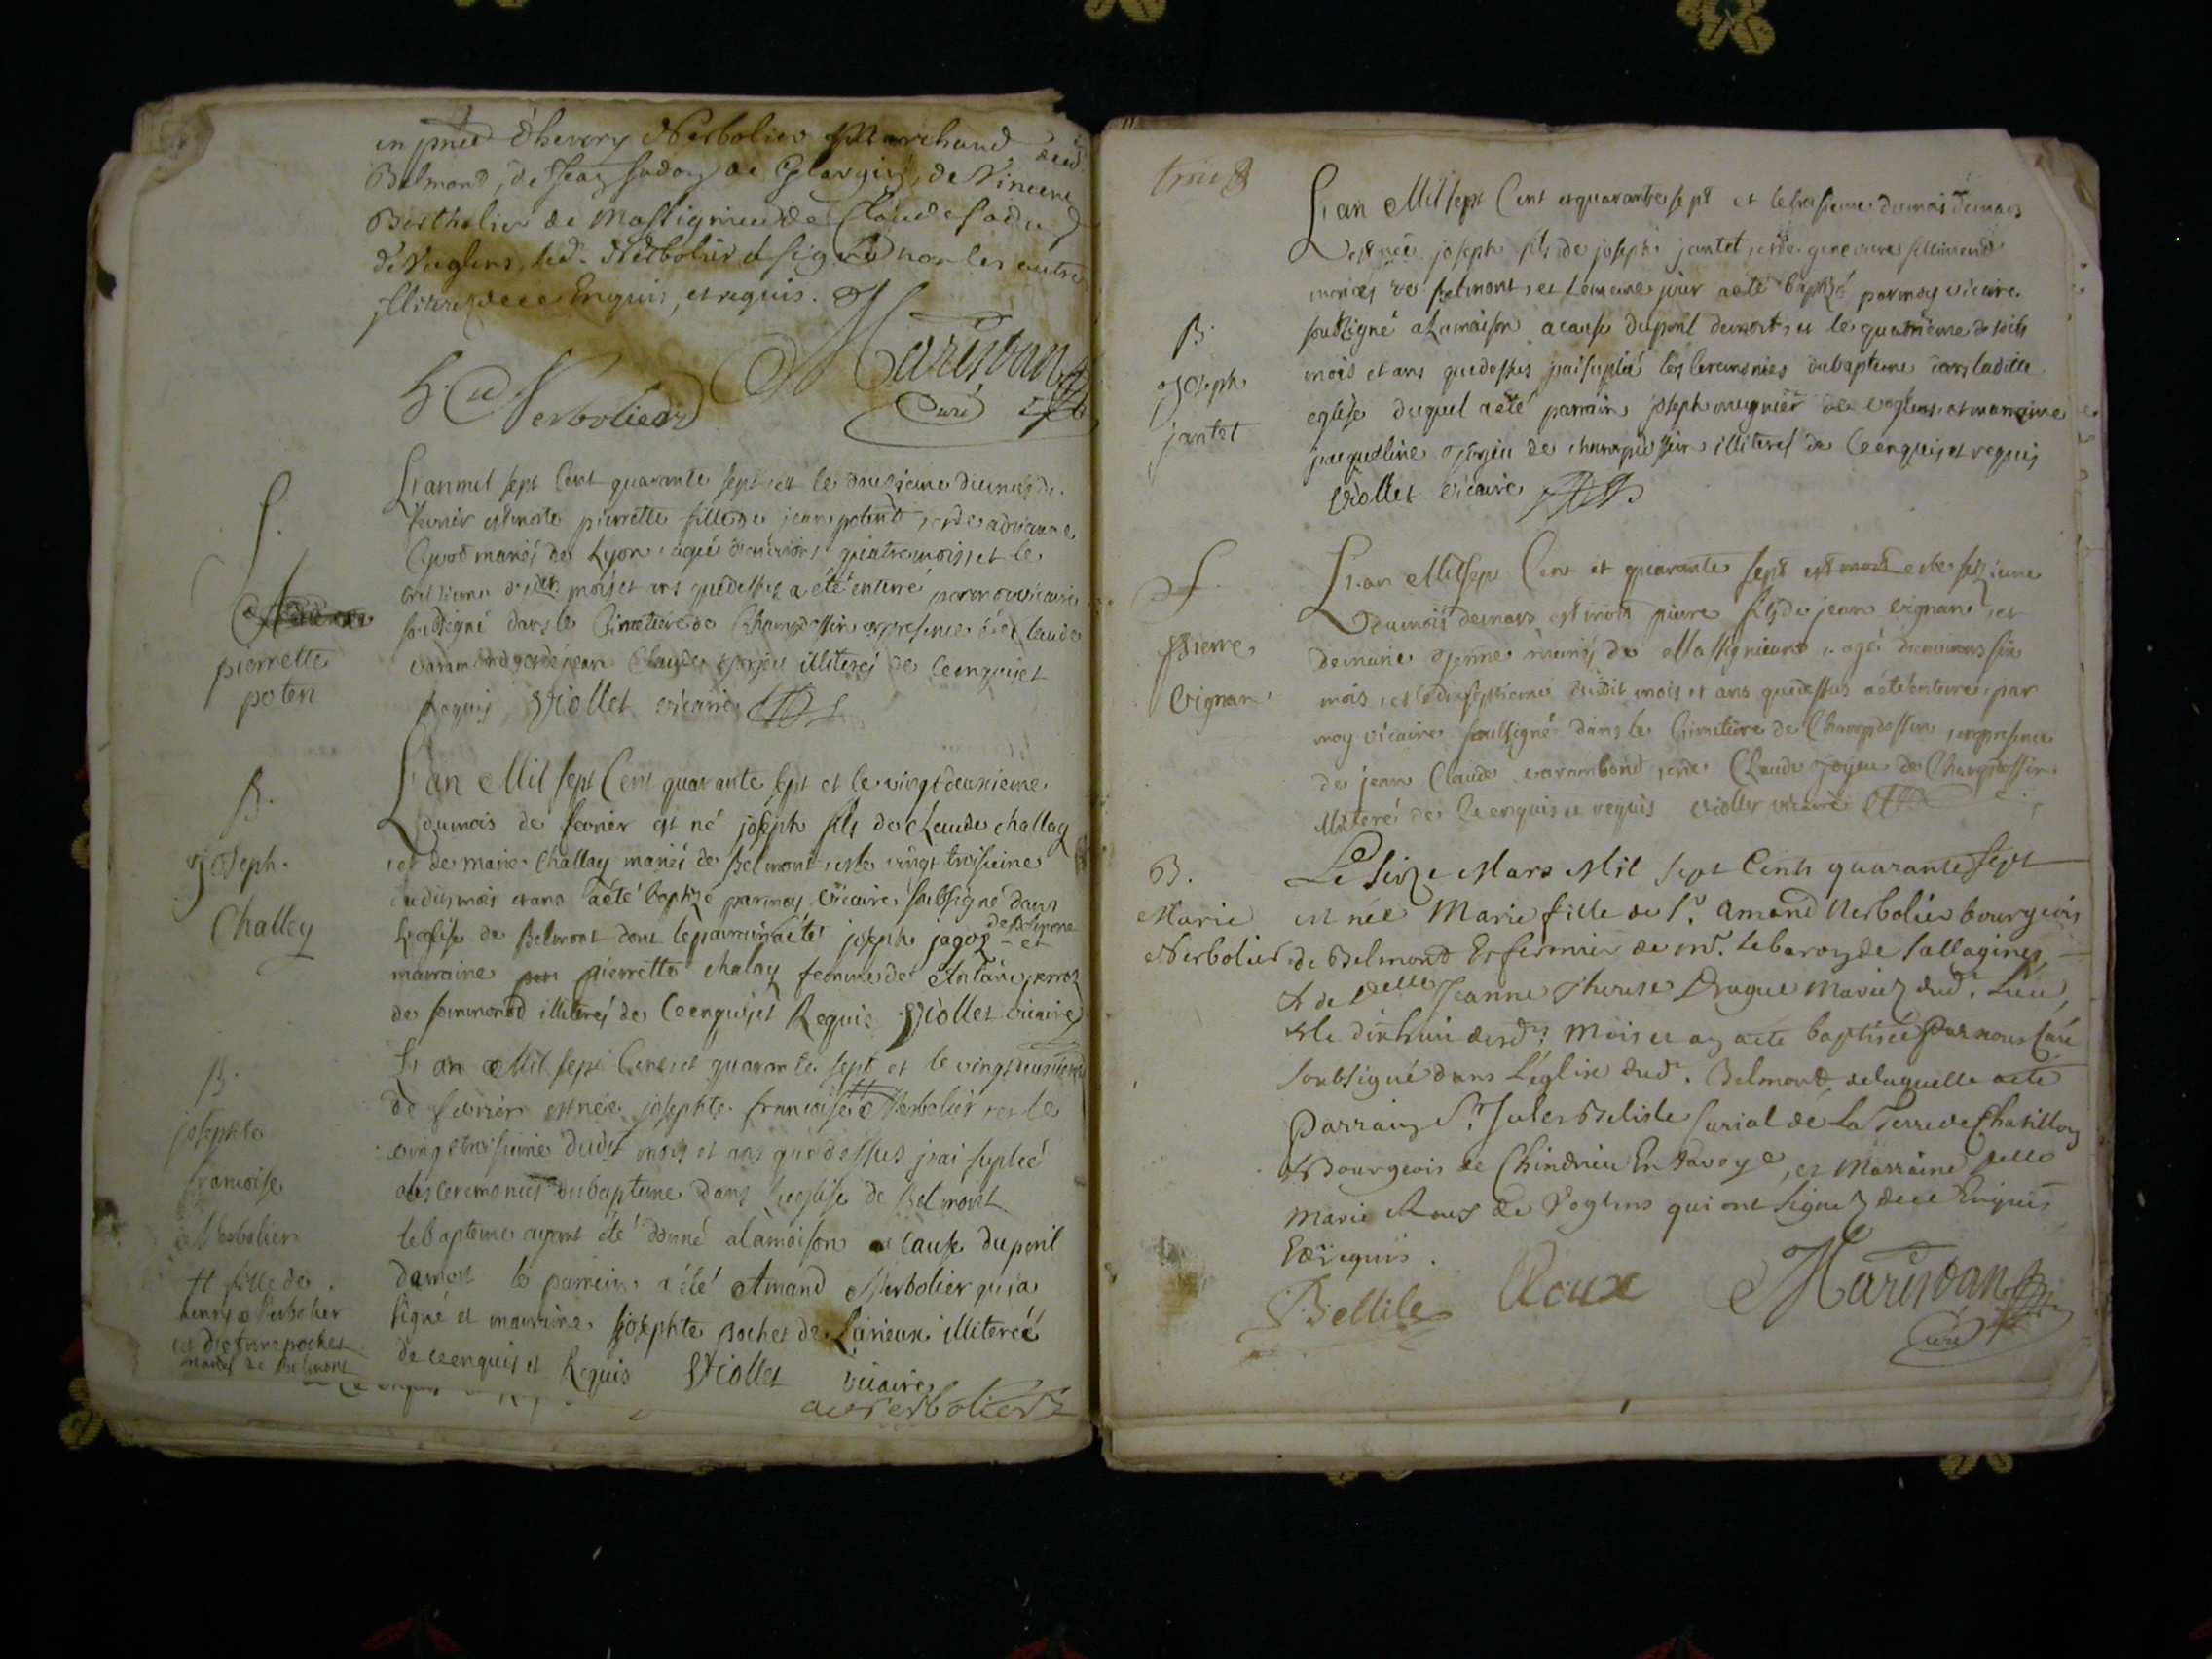 en pnce d'henry Nerbolier Marchand dud.
Belmond, de Jean de de Vincent
Bertholier de Massignieu de Claude
de Veglens, led. Nerbolier a signé non les autres
illitérez de ce Enquis, et requis.
h. Nerbolier Marindan
Curé
S.
pierrette
poten
L'an mil sept Cent quarante sept et le douzieme du mois de
fevrier est morte pierrette fille de jean potend, et de adrianne
mariés de Lyon agée d'environ quatre mois, et le
treisieme desdits mois et ans que dessus a été enterré par moy vicaire
soubsigné dans le Cimetiere de Champdossin en presence de Claude
et de jean Claude illiterés de Ceenquis et
Requis Viollet vicaire
B.
Joseph
Challey
L'an Mil sept Cent quarante sept et le vingt deuxieme
du mois de fevrier est né joseph fils de Claude challay
et de marie Challay mariés de Belmont et le vingt troisieme
dudit mois et ans a été baptizé par moy vicaire soubsigné dans
L'eglise de Belmont dont le parrain a été joseph jagoz de Belmont et
marraine pierrette chalay femme de Antoine
de sommond illiterés de Ceenquis et Requis Viollet vicaire
B.
josephte
francoise
Nerbolier
# fille de
henry Nerbolier
et d'etiennepochet
mariés de Belmont
L'an Mil sept Cent et quarante sept et le vingt deuxieme
de fevrier est née josephte francoise # Nerbolier et le
vingt troisieme dudit mois et ans que dessus j'ai supleé
les ceremonies du bapteme dans L'eglise de Belmont
le bapteme ayant été donné a la maison a cause du peril
de mort le parrain a été Amand Nerbolier qui a
signé et marraine josephte Bochet de Lavieux illitereé
de ceenquis et Requis Viollet vicaire
a Nerbolier
B.
Joseph
jantet
L'an Mil sept Cent et quarante sept et le troisieme du mois de mars
est née joseph fils de joseph jantet, et de genevieve
mariés de Belmont, et le meme jour a été baptizé par moy vicaire
soubsigné a La maison a cause du peril de mort, et le quatrieme desdits
mois et ans que dessus j'ai supleé les Ceremonies du bapteme dans ladite
eglise duquel a été parrain joseph mugnier de veglens et marraine
jacqueline de champdossin illiteres de Ceenquis et requis
Viollet vicaire
S.
Pierre
Vignan
L'an Mil sept Cent et quarante sept et le seizieme
du mois de mars est mort pierre fils de jean vignan, et
de marie jenne mariés de Massignieux, agé d'environs six
mois, et le dix septieme dudit mois et ans que dessus a été enterré, par
moy vicaire soussigné dans le Cimetiere de Champdossin, en presence
de jean Claude varambond, et de Claude de Champdossin
illiteré de Ceenquis et requis Viollet vicaire
B.
Marie
Nerbolier
Le Seize Mars Mil sept Cents quarante sept
est née Marie fille de Sr. Amand Nerbolier bourgeois
de Belmond Et fermier de mr. le baron de Vallagines,
& de Delle Jeanne Therese Drague Mariez dud. Lieu,
& le dixhuit desds. Mois et an a eté baptisée Par nous Curé
Soubsigné dans L'église dud. Belmond, de laquelle a eté
Parrain Sr. Jules Belisle Curial de La Terre de Chatillon
& Bourgeois de Chindrieu En Savoye, et Marraine Delle
Marie Roux de Veglens qui ont signez de ce Enquis
Et requis.
Bellile Roux Marindan
Curé